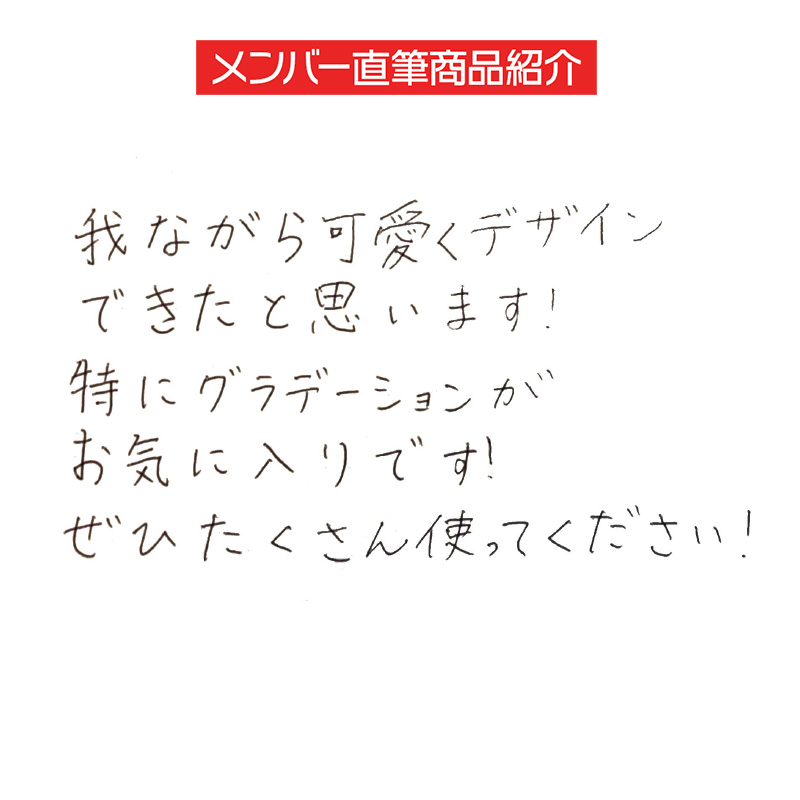 メンバー直筆商品紹介
我ながら可愛くデザイン
できたと思います!
特にグラデーションが
お気に入りです!
ぜひたくさん使ってください!